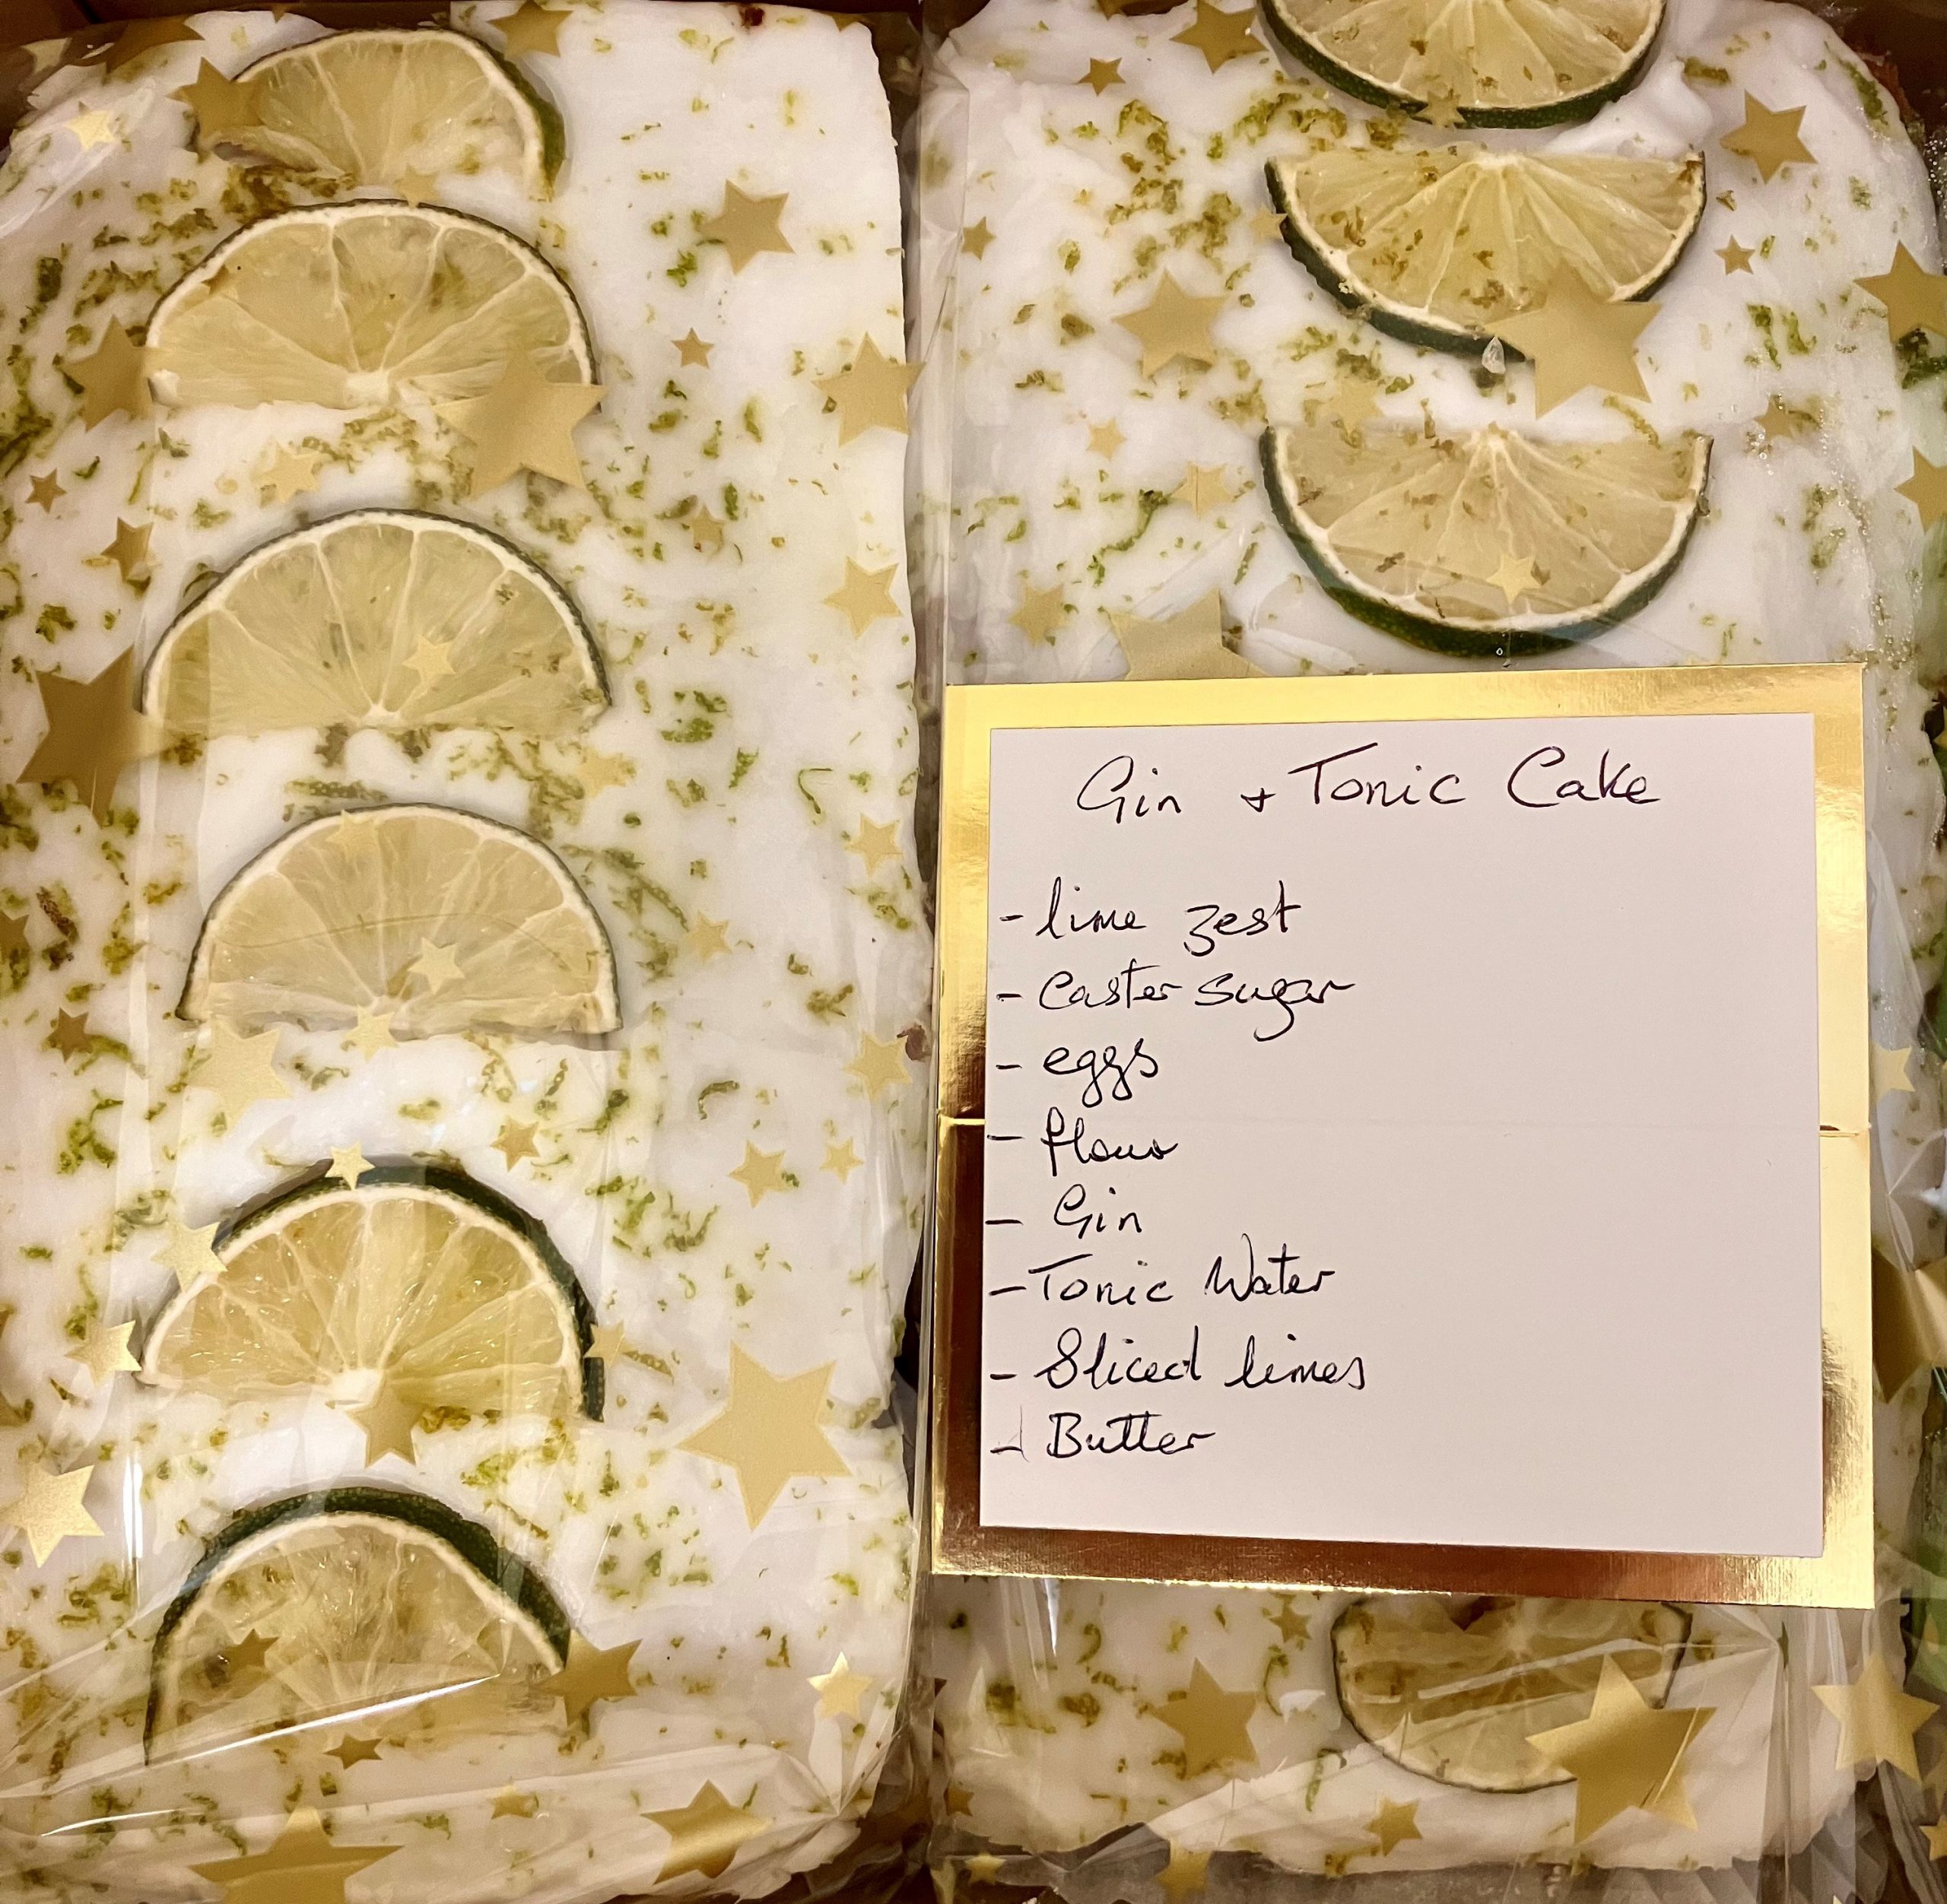 Gin + Tonic Cake
- lime zest
- Caster sugar
- eggs
- flour
- Gin
- Tonic Water
- Sliced limes
- Butter